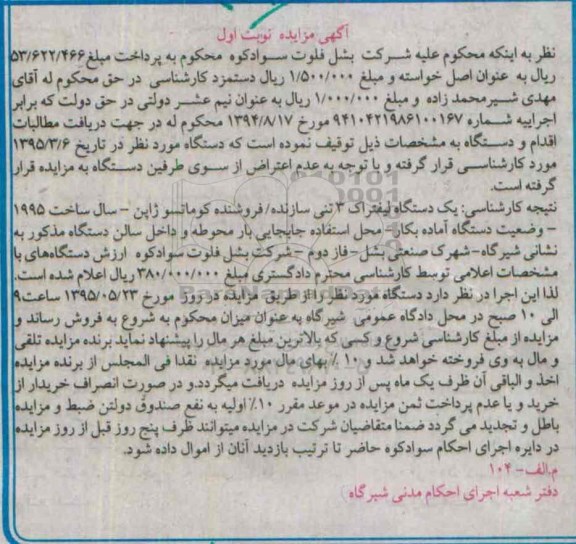 آگهی مزایده نوبت اول
نظر به اینکه محکوم علیه شرکت بشل فلوت سوادکوه محکوم به پرداخت مبلغ ۵۳/۶۲۲/۴۶۶
ریال به عنوان اصل خواسته و مبلغ ۱/۵۰۰/۰۰۰ ریال دستمزد کارشناسی در حق محکوم له آقای
مهدی شیرمحمد زاده و مبلغ ۱/۰۰۰/۰۰۰ ریال به عنوان نیم عشر دولتی در حق دولت که برابر
اجراییه شماره ۹۴۱۰۴۲۱۹۸۶۱۰۰۱۶۷ مورخ ۱۳۹۴/۸/۱۷ محکوم له در جهت دریافت مطالبات
اقدام و دستگاه به مشخصات ذیل توقیف نموده است که دستگاه مورد نظر در تاریخ ۱۳۹۵/۳/۶
مورد کارشناسی قرار گرفته و با توجه به عدم اعتراض از سوی طرفین دستگاه به مزایده قرار
گرفته است.
نتیجه کارشناسی: یک دستگاه لیفتراک ۳ تنی سازنده/فروشنده کوماتسو ژاپن - سال ساخت ۱۹۹۵
- وضعیت دستگاه آماده بکار- محل استفاده جابجایی بار محوطه و داخل سالن دستگاه مذکور به
نشانی شیرگاه-شهرک صنعتی بشل-فاز دوم - شرکت بشل فلوت سوادکوه ارزش دستگاه‌های با
مشخصات اعلامی توسط کارشناسی محترم دادگستری مبلغ ۳۸۰/۰۰۰/۰۰۰ ریال اعلام شده است.
لذا این اجرا در نظر دارد دستگاه مورد نظر را از طریق مزایده در روز مورخ ۱۳۹۵/۰۵/۲۳ ساعت ۹
الی ۱۰ صبح در محل دادگاه عمومی شیرگاه به عنوان میزان محکوم به شروع به فروش رساند و
مزایده از مبلغ کارشناسی شروع و کسی که بالاترین مبلغ هر مال را پیشنهاد نماید برنده مزایده تلقی
و مال به وی فروخته خواهد شد و ۱۰ ٪ بهای مال مورد مزایده نقدا فی المجلس از برنده مزایده
اخذ و الباقی آن ظرف یک ماه پس از روز مزایده دریافت میگردد.و در صورت انصراف خریدار از
خرید و یا عدم پرداخت ثمن مزایده در موعد مقرر ۱۰٪ اولیه به نفع صندوق دولتن ضبط و مزایده
باطل و تجدید می گردد ضمنا متقاضیان شرکت در مزایده میتوانند ظرف پنج روز قبل از روز مزایده
در دایره اجرای احکام سوادکوه حاضر تا ترتیب بازدید آنان از اموال داده شود.
م.الف- ۱۰۴
دفتر شعبه اجرای احکام مدنی شیرگاه